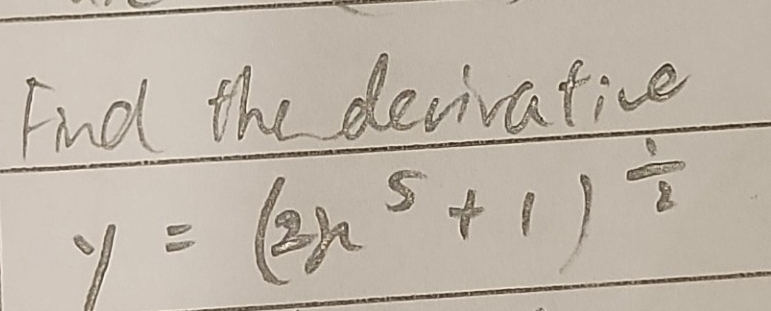 Find the derivative
y = (2x^5 + 1)^{1/2}